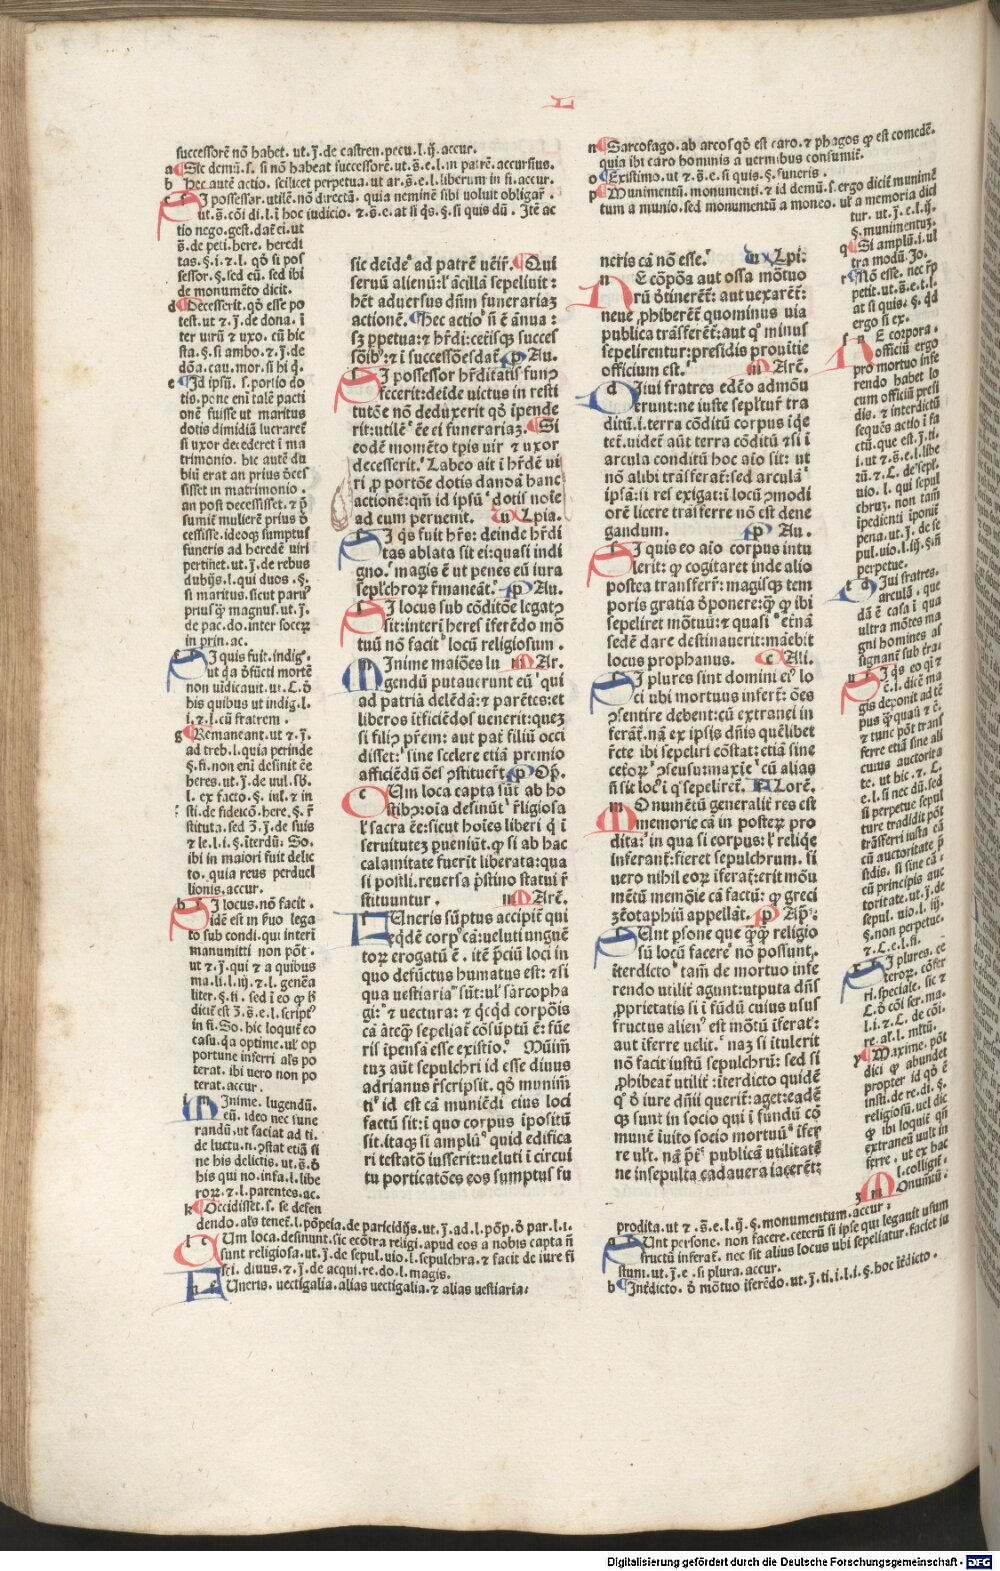 L
successorē nō habet. ut.j̄.de castren.pecu.l.ij.accur.
a Sic demū.s. si nō habeat successorē.ut.s̄.e.l.in patrē.accursius.
b Hec autē actio. scilicet perpetua.ut ar.s̄.e.l.liberum in fi.accur.
c SI possessor.utilē.nō directū. quia neminē sibi voluit obligar̄.
ut.s̄.cōi di.l.i hoc iudicio. ⁊.s̄.e.at si qs̄.§.si quis dū. Itē ac
tio nego.gest.dat̄ ei.ut
s̄.de peti.here. heredi
tas.§.i.⁊.l. qō si pos
sessor.§.sed eū.sed ibi
de monumēto dicit.
d Decesserit.qō esse po
test.ut ⁊.j̄.de dona.i
ter uirū ⁊ uxo. cū hic
sta.§.si ambo.⁊.j̄.de
dōa.cau.mor.si hi q̄.
e Id ipsū.s.portio do
tis.pone eni talē pacti
onē fuisse ut maritus
dotis dimidiā lucraret̄
si uxor decederet i ma
trimonio. hic autē du
biū erat an prius d̄ces
sisset in matrimonio.
an post decessisset.⁊ p̄
sumit̄ mulierē prius d̄
cessisse.ideoq; sumptus
funeris ad heredē uiri
pertinet.ut.j̄.de rebus
dubijs.l.qui duos.§.
si maritus.sicut paruꝰ
prius q̄ magnus.ut.j̄.
de pac.do.inter socerꝝ
in prin.ac.
f SI quis fuit.indigꝰ.
ut q̄a d̄fūcti mortē
non uīdicauit.ut.C.d̄
his quibus ut indig.l.
i.⁊.l.cū fratrem.
g Remaneant.ut ⁊.j̄.
ad treb.l.quia perinde
§.fi.non eni desinit ēe
heres.ut.j̄.de uul.sb̄.
l. ex facto.§. iul.⁊ in
sti.de fideicō.here.§.r̄
stituta.sed ꝯ.j̄.de suis
⁊ le.l.i.§.iterdū. So.
ibi in maiori fuit delic
to.quia reus perduel
lionis.accur.
h SI locus.nō facit.
idē est in ẜuo lega
to sub condi.qui interi
manumitti non pōt.
ut ⁊.j̄.qui ⁊ a quibus
ma.li.l.ij.⁊.l. genēa
liter.§.fi. sed i eo qꝫ h̄
dicit̄ est ꝯ.s̄.e.l.script̄
in fi.So. hic loquit̄ eo
casu.q̄a optime.ul̄ op
portune inferri al̄s po
terat.ibi uero non po
terat.accur.
i MInime. lugendū.
eū. ideo nec fune
randū.ut faciat ad ti.
de luctu.n.ꝯstat etiā si
ne his delictis. ut.s̄.d̄
his qui no.infa.l.libe
rorꝝ.⁊.l.parentes.ac.
k Occidisset.s.se defen
dendo.al̄s tenet̄.l.pōpeia.de paricidijs.ut.j̄.ad.l.pōp.d̄ par.l.i.
l CUm loca.desinunt.sic ecōtra religi.apud eos a nobis capta n̄
sunt religiosa.ut.j̄.de sepul.uio.l.sepulchra.⁊ facit de iure fi
sci. diuus.⁊.j̄.de acqui.re.do.l.magis.
m FUneris. uectigalia.alias uectigalia.⁊ alias uestiaria.
sic deīde ad patrē uēir̄. Qui
seruū alienū:l̄ ācillā sepeliuit:
hēt aduersus dn̄m funerariaꝫ
actionē. Hec actioꝰ n̄ ē ānua:
sꝫ ꝑpetua:⁊ hr̄di:ceterisqꝫ succes
sōibꝰ:⁊ i successōes dat̄. pAu.
SI possessor hr̄ditatis funꝰ
fecerit:deīde uictus in resti
tutōe nō deduxerit qō ipende
rit:utilēꝰ ēe ei funerariaꝫ. Si
eodē momēto tp̄is uir ⁊ uxor
decesserit. Labeo ait i hr̄dē ui
ri ꝓ portōe dotis dandā hanc
actionē:qm̄ id ipsūꝰ dotis noīe
ad eum peruenit. uLpia.
SI qs̄ fuit hr̄s: deinde hr̄di
tas ablata sit ei:quasi indi
gno.ꝰ magis ē ut penes eū iura
sepl̄chrorꝝ r̄maneāt.ꝰ pAu.
SI locus sub cōditōe legatꝰ
sit:interī heres īferēdo mō
tuū nō facitꝰ locū religiosum.
MInime maiōes lu mAr.
gendū putauerunt eūꝰ qui
ad patriā delēdā:⁊ parētes:et
liberos īt̄ficiēdos uenerit:quēꝫ
si filiꝰ pr̄em: aut pat̄ filiū occi
disset:ꝰ sine scelere etiā premio
afficiēdū ōes ꝯstituer̄t. pOp̄.
CUm loca capta sūt ab ho
stibꝰ:oīa desinūt r̄ligiosa
l̄ sacra ēe:sicut hoīes liberi q̄ i
seruituteꝫ ꝑueniūt.qꝫ si ab hac
calamitate fuerīt liberata:qua
si postli.reuersa p̄stino statui r̄
stituuntur. mArē.
FUneris sūptus accipit̄ qui
eqdē corpꝰ cā:ueluti unguē
torꝝ erogatū ē. itē p̄ciū loci in
quo defūctus humatus est:⁊ si
qua uestiariaꝰ sūt:ul̄ sarcopha
gi:ꝰ ⁊ uectura: ⁊ qcqd corpōis
cā ātecꝫ sepeliat̄ cōsūptū ē: fūe
ris īpensā esse existīo.ꝰ Mūim̄
tuꝫ aūt sepulchri id esse diuus
adrianus r̄scripsit. qō munim̄
tiꝰ id est cā muniēdi eius loci
factū sit:i quo corpus īpositū
sit.itaqꝫ si ampluꝰ quid edifica
ri testatō iusserit:ueluti i circui
tu porticatōes eos sumptus fu
n Sarcofago.ab arcos qō est caro.⁊ phagos qꝫ est comedē.
quia ibi caro hominis a uermibus consumit̄.
o Existimo.ut ⁊.s̄.e.si quis.§.funeris.
p Munimentū.monumenti.⁊ id demū.s.ergo dicit̄ munimē
tum a munio.sed monumentū a moneo.ul̄ a memoria dici
tur. ut.j̄.e.l.ij.
§.munimentuꝫ.
q Si amplū.i.ul
tra modū.Jo.
r Nō esse.nec r̄p
petit.ut.s̄.e.t.l.
at si quis.§. qd
ergo si ex.
s NE corpora.
officiū ergo
pro mortuo infe
rendo habet lo
cum officiū presi
dis.⁊ interdictū
sequēs actio i fa
ctū.que est.j̄.ti.
i.ut ⁊.s̄.e.l.libe
rū.⁊.C. de sepl̄.
uio.l. qui sepul
chruꝫ. non tam̄
īpedienti īponit̄
pena.ut.j̄.de se
pul.uio.l.iij.§.n̄
perpetue.
t DIui fratres.
arculā. que
dā ē casa i qua
ultra mōtes ma
gni homines as
signant̄ sub ēra.
u SI qs̄ eo qi ⁊
s̄.l. dicē ma
gis deponit ad tē
pus qꝫ quasi ⁊ ē.
⁊ tunc pōt trans
ferre etiā sine ali
cuius auctorita
te. ut hic.⁊.C.
e.l.si nec dū.sed
si perpetue sepul
ture tradidit pōt
trāsferri iusta cā
cū auctoritate p̄
sidis. si sine cā.
cū principis auc
toritate.ut.j̄.de
sepul. uio.l. iij.
§.non perpetue.
⁊.C.e.l.fi.
x SI plures. ce
terorꝝ. cōfer
ri.speciale. sic ⁊
C.d̄ cōi ser.ma.
l.i.⁊.C. de cōi.
re.al.l. mltū.
y Maxime. pōt
dici qꝫ abundet
propter id qō ē
insti.de re.di.§.
religiosū.uel dic
qꝫ ibi loquit̄ qn̄
extraneū uult in
ferre. ut ex hac
l.colligit̄.
z MOnumētū.
prodita.ut ⁊.s̄.e.l.ij.§.monumentum.accur.
a SUnt persone. non facere.ceterū si ipse qui legauit usum
fructū inferat̄. nec sit alius locus ubi sepeliatur.faciet iu
stum.ut.j̄.e.si plura.accur.
b Int̄dicto. d̄ mōtuo īferēdo.ut.j̄.ti.i.l.i.§.hoc īt̄dicto.
neris cā nō esse.ꝰ uLpi.
NE cōpōꝫ aut ossa mōtuo
rū d̄tinerēt̄:aut uexarēt̄:
neue ꝓhiberēt̄ quominus uia
publica trāsferrēt̄:aut qꝰ minus
sepelirentur:presidis prouītie
officium est.ꝰ mArē.
DIui fratres edēo admōu
erunt:ne iuste sepl̄tur̄ tra
ditū.i.terra cōditū corpus iqe
tet̄.uidet̄ aūt terra cōditū ⁊ si i
arcula conditū hoc aīo sit: ut
nō alibi trāsferat̄:sed arculāꝰ
ipsā:si res exigat:i locū ꝯmodi
orē licere trāsferre nō est dene
gandum. pAu.
SI quis eo aīo corpus intu
lerit: qꝫ cogitaret inde alio
postea transferr̄: magisqꝫ tem
poris gratia d̄ponere:qꝫ qꝫ ibi
sepeliret mōtuū:⁊ quasiꝰ et̄nā
sedē dare destinauerit:māebit
locus prophanus. cAli.
SI plures sint domini eiꝰ lo
ci ubi mortuus infert̄: ōes
ꝯsentire debent:cū extranei in
ferāt̄.nā ex ipsis dn̄is quēlibet
r̄cte ibi sepeliri cōstat:etiā sine
ceterorꝝꝰ ꝯsensu:maxīeꝰ cū alias
n̄ sit locꝰ i qꝰ sepeliret̄. fLorē.
MOnumētū generalit̄ res est
memorie cā in posterꝝ pro
dita:ꝰ in qua si corpus:l̄ reliqe
inferant̄:fieret sepulchrum. si
uero nihil eorꝝ īferat̄:erit mōu
mētū memōie cā factū: qꝫ greci
zēotaphiū appellāt̄. pAp̄.
SUnt psone que qꝫqꝫ religio
sū locū facereꝰ nō possunt,
īterdictoꝰ tam̄ de mortuo infe
rendo utilit̄ agunt:utputa dn̄s
ꝓprietatis si i fūdū cuius usus
fructus alienꝰ est mōtū īferat̄:
aut īferre uelit.ꝰ naꝫ si ītulerit
nō facit iustū sepulchrū: sed si
ꝓhibeat̄ utilit̄:īterdicto quidē
qꝰ d̄ iure dn̄ii querit̄:aget:eadē
qꝫ sunt in socio qui i fūndū cō
munē īuito socio mortuūꝰ īfer
re ult̄. nā p̄tꝰ publicā utilitatē
ne insepulta cadauera iacerēt:
Digitalisierung gefördert durch die Deutsche Forschungsgemeinschaft - DFG